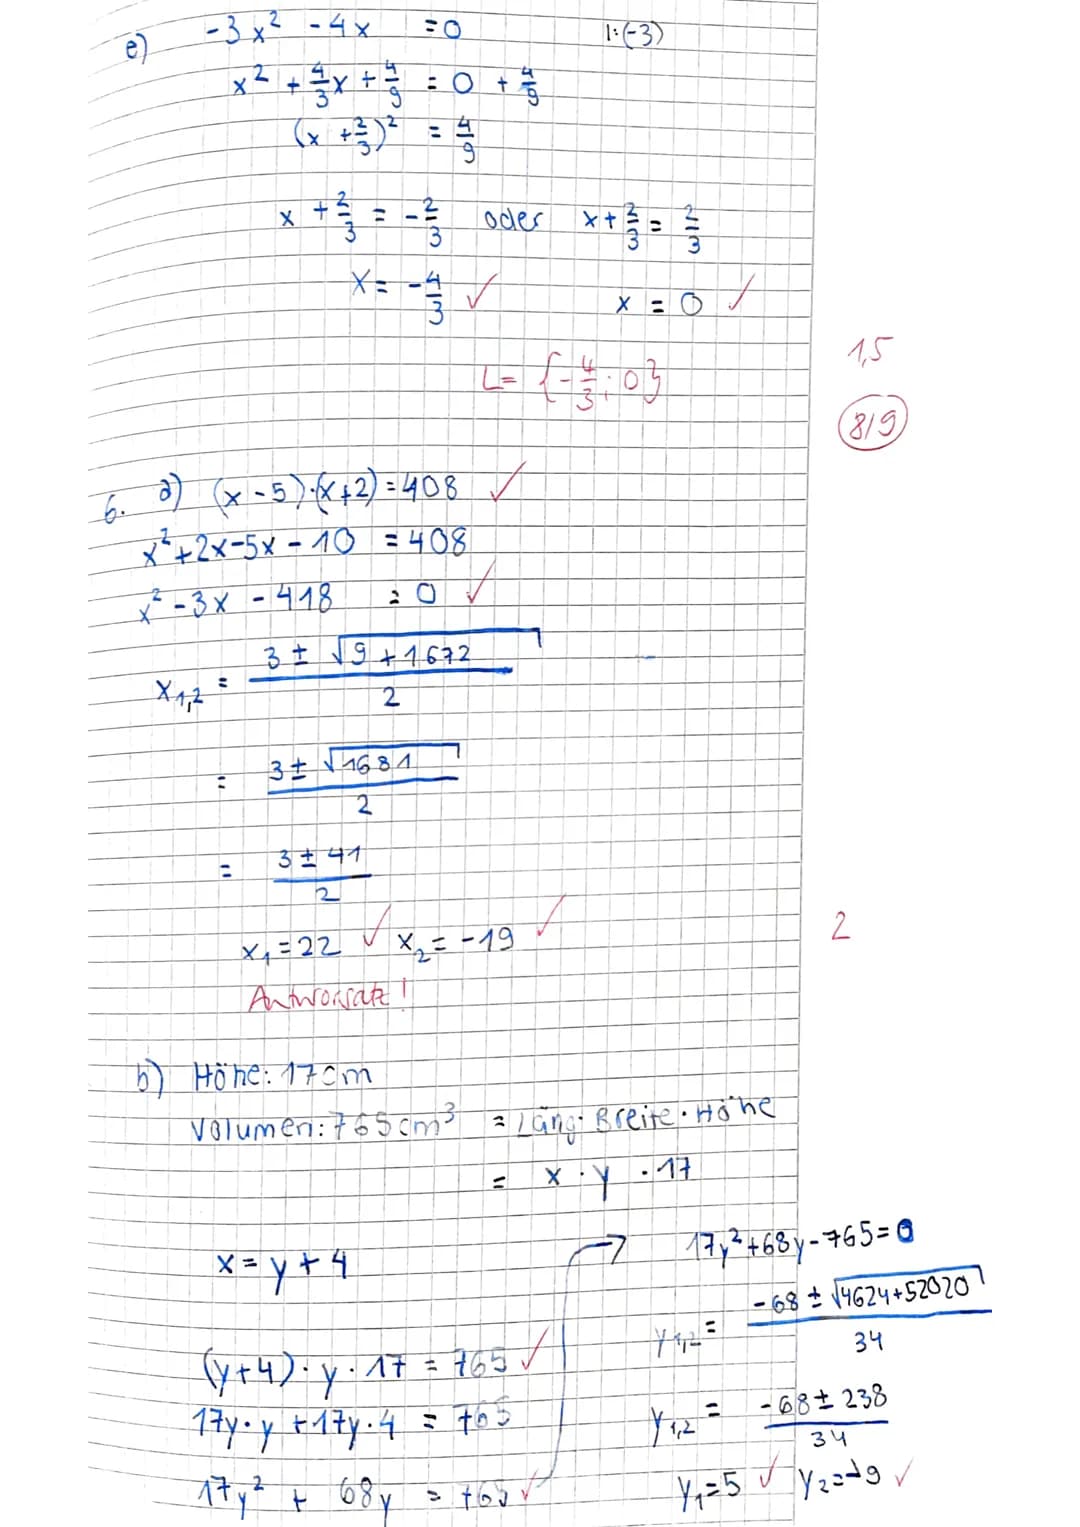 e) -3x² - 4x = 0 |:(-3)
x² + 4/3x + 4/9 = 0 + 4/9
(x + 2/3)² = 4/9
x + 2/3 = -2/3 oder x + 2/3 = 2/3
x = -4/3 ✓ x = 0 ✓
1,5
L = {-4/3; 0}
8/9
6. a) (x - 5)·(x+2) = 408 ✓
x² + 2x - 5x - 10 = 408
x² - 3x - 418 = 0 ✓
x1,2 = (3 ± √(9 + 1672)) / 2
= (3 ± √1681) / 2
= (3 ± 41) / 2
x1 = 22 ✓ x2 = -19 ✓
2
Antworsatz!
b) Höhe: 17cm
Volumen: 765cm³ = Läng· Breite · Höhe
= x · y · 17
x = y + 4
(y+4) · y · 17 = 765 ✓
17y · y + 17y · 4 = 765
17y² + 68y = 765 ✓
→ 17y² + 68y - 765 = 0
y1,2 = (-68 ± √(4624 + 52020)) / 34
y1,2 = (-68 ± 238) / 34
y1 = 5 ✓ y2 = -9 ✓